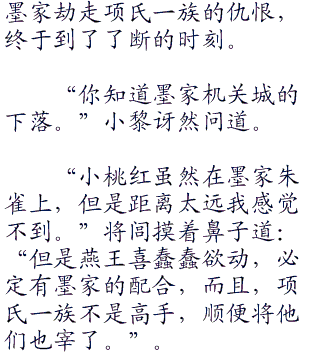 墨家劫走项氏一族的仇恨，
终于到了了断的时刻。
“你知道墨家机关城的
下落。”小黎讶然问道。
“小桃红虽然在墨家朱
雀上，但是距离太远我感觉
不到。”将闾摸着鼻子道：
“但是燕王喜蠢蠢欲动，必
定有墨家的配合，而且，项
氏一族不是高手，顺便将他
们也宰了。”。